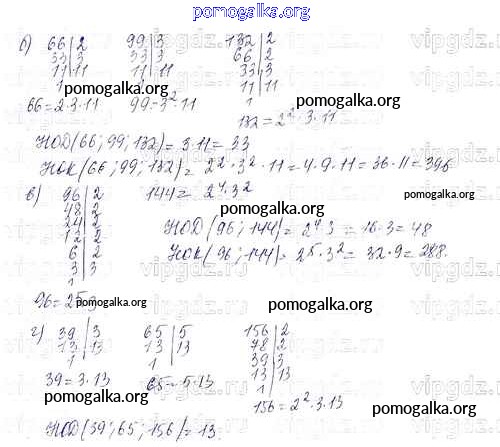 pomogalka.org
б) 66|2 99|3 132|2
33|3 33|3 66|2
11|11 11|11 33|3
1 11|11
pomogalka.org pomogalka.org
66=2·3·11 99=3²·11 1
132=2²·3·11
НОД(66;99;132)=3·11=33
pomogalka.org
НОК(66;99;132)=2²·3²·11=4·9·11=36·11=396
в) 96|2 144=2⁴·3²
48|2
pomogalka.org
24|2 НОД(96;144)=2⁴·3=16·3=48
12|2
6|2 НОК(96;144)=2⁵·3²=32·9=288.
3|3
1
96=2⁵·3
pomogalka.org pomogalka.org
г) 39|3 65|5 156|2
13|13 13|13 78|2
1 1 39|3
13|13
pomogalka.org
1
39=3·13 65=5·13
156=2²·3·13
pomogalka.org pomogalka.org
НОД(39;65;156)=13
vipgdz.ru